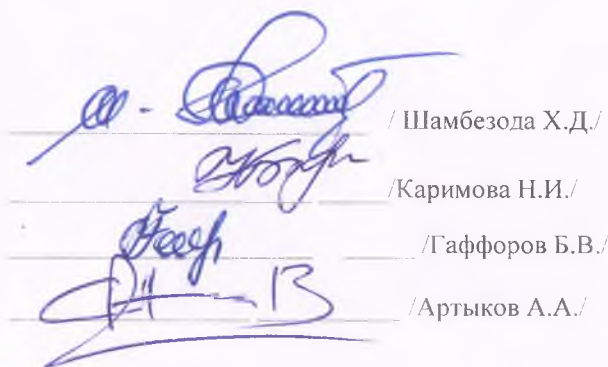 / Шамбезода Х.Д./
/Каримова Н.И./
/Гаффоров Б.В./
/Артыков А.А./